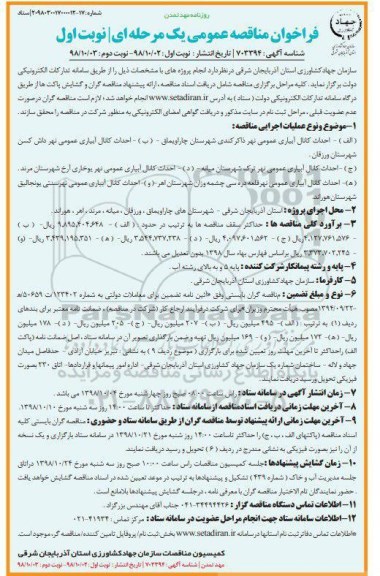 روزنامه مهد تمدن
شماره: ۲۰۹۸۰۳۰۱۷۰۰۰۰۱۲-۱۷/اسناد
جهاد
فراخوان مناقصه عمومی یک مرحله ای | نوبت اول
شناسه آگهی: ۷۰۳۳۹۴ | تاریخ انتشار : نوبت اول: ۹۸/۱۰/۰۲- نوبت دوم: ۹۸/۱۰/۰۳
سازمان جهاد کشاورزی استان آذربایجان شرقی درنظر دارد انجام پروژه های با مشخصات ذیل را از طریق سامانه تدارکات الکترونیکی
دولت برگزار نماید. کلیه مراحل برگزاری مناقصه شامل دریافت اسناد مناقصه، ارائه پیشنهاد مناقصه گران و گشایش پاکت ها از طریق
درگاه سامانه تدارکات الکترونیکی دولت ( ستاد ) به آدرس www.setadiran.ir انجام خواهد شد؛ لازم است مناقصه گران درصورت
عدم عضویت قبلی، مراحل ثبت نام در سایت مذکور و دریافت گواهی امضای الکترونیکی به منظور شرکت در مناقصه را محقق سازند.
۱- موضوع و نوع عملیات اجرایی مناقصه:
( الف - احداث کانال آبیاری عمومی نهر ذاکر کندی شهرستان چاراویماق - (ب - احداث کانال آبیاری عمومی نهر داش کسن
شهرستان ورزقان.
(ج - احداث کانال آبیاری عمومی نهر ترک شهرستان میانه - (د - احداث کانال آبیاری عمومی نهر یوخاری آرخ شهرستان مرند .
(ه- احداث کانال آبیاری عمومی نهر قلعه دره سی چشمه وزان شهرستان اهر - (و - احداث کانال آبیاری عمومی نهر سنتی یونجالیق
شهرستان هوراند.
۲- محل اجرای پروژه: استان آذربایجان شرقی - شهرستان های چاراویماق ، ورزقان ، میانه ، مرند ، اهر ، هوراند.
۳- برآورد کلی مناقصه ها : حداکثر سقف مناقصه ها به ترتیب در حدود ، ( الف -
ریال براساس فهارس بهاء سال ۱۳۹۸ بدون تعدیل می باشند.
۴- پایه و رشته پیمانکار شرکت کننده : پایه ۵ و به بالای رشته آب .
۵- کارفرما: سازمان جهاد کشاورزی استان آذربایجان شرقی .
۶- نوع و مبلغ تضمین : مناقصه گران بایستی وفق «آئین نامه تضمین برای معاملات دولتی به شماره
مصوب هیأت محترم وزیران» برای شرکت در فرآیند ارجاع کار (شرکت در مناقصه)، ضمانت نامه معتبر برای بندهای
ردیف (۱) به ترتیب : (الف- ۴۹۵ میلیون ریال- (ب- ۲۰۷ میلیون ریال- (ج- ۲۰۵ میلیون ریال- (د- ۱۷۸ میلیون
ریال- (ه- ۱۷۴ میلیون ریال- (و- ۱۶۹ میلیون ریال تهیه و ضمن بارگذاری تصویر آن در سامانه ستاد ، اصل ضمانت نامه (پاکت
الف) را حداکثر تا آخرین مهلت روز تعیین شده برای بارگزاری ( موضوع ردیف ۹ ) به نشانی : تبریز خیابان آزادی - حدفاصل میدان
جهاد و لاله - ساختمان شماره یک سازمان جهاد کشاورزی استان آذربایجان شرقی- اداره امور پیمانها و قراردادها- اتاق ۲۳۰ بصورت
فیزیکی تحویل و رسید دریافت نمایند.
۷- زمان انتشار آگهی در سامانه ستاد: راس ساعت ۸:۰۰ صبح روز چهارشنبه مورخ ۱۳۹۸/۱۰/۰۴ می باشد .
۸- آخرین مهلت زمانی دریافت اسناد مناقصه از سامانه ستاد : حداکثر تا ساعت ۱۴:۰۰ روز سه شنبه مورخ ۱۳۹۸/۱۰/۱۰.
۹- آخرین مهلت زمانی ارائه پیشنهاد توسط مناقصه گران از طریق سامانه ستاد و حضوری: مناقصه گران بایستی کلیه
اسناد مناقصه (پاکتهای الف ، ب ، ج) را حداکثر تا ساعت ۱۴:۰۰ روز شنبه مورخ ۱۳۹۸/۱۰/۲۱ در سامانه ستاد بارگزاری و یک نسخه
از آن را نیز بصورت فیزیکی به نشانی مندرج در ردیف (۶) تحویل و رسید دریافت نمایند.
۱۰- زمان گشایش پیشنهادها : جلسه کمیسیون مناقصات راس ساعت ۱۰:۰۰ صبح روز سه شنبه مورخ ۱۳۹۸/۱۰/۲۴ در اتاق
جلسه مدیریت آب و خاک ( شماره ۴۳۹ ) تشکیل و پیشنهادها به ترتیب در موعد تعیین شده در اسناد مناقصه گشایش خواهد یافت
. حضور نمایندگان تام الاختیار مناقصه گران با معرفی نامه ، در جلسه گشایش پیشنهادها بلامانع است .
۱۱- اطلاعات تماس دستگاه مناقصه گزار : ۳۴۴۹۴۴۲۶-۰۴۱ جناب آقای مهندس بزرگزاد.
۱۲- اطلاعات تماس سامانه ستاد جهت انجام مراحل عضویت در سامانه ستاد : مرکز تماس: ۴۱۹۳۴-۰۲۱
«اطلاعات تماس دفاتر ثبت نام استانها در سامانه www.setadiran.ir بخش ثبت نام/ پروفایل تامین کننده/ مناقصه گر، موجود است.»
کمیسیون مناقصات سازمان جهاد کشاورزی استان آذربایجان شرقی
مهد تمدن | شناسه آگهی: ۷۰۳۳۹۴ | تاریخ انتشار: نوبت اول: ۹۸/۱۰/۰۲- نوبت دوم: ۹۸/۱۰/۰۳